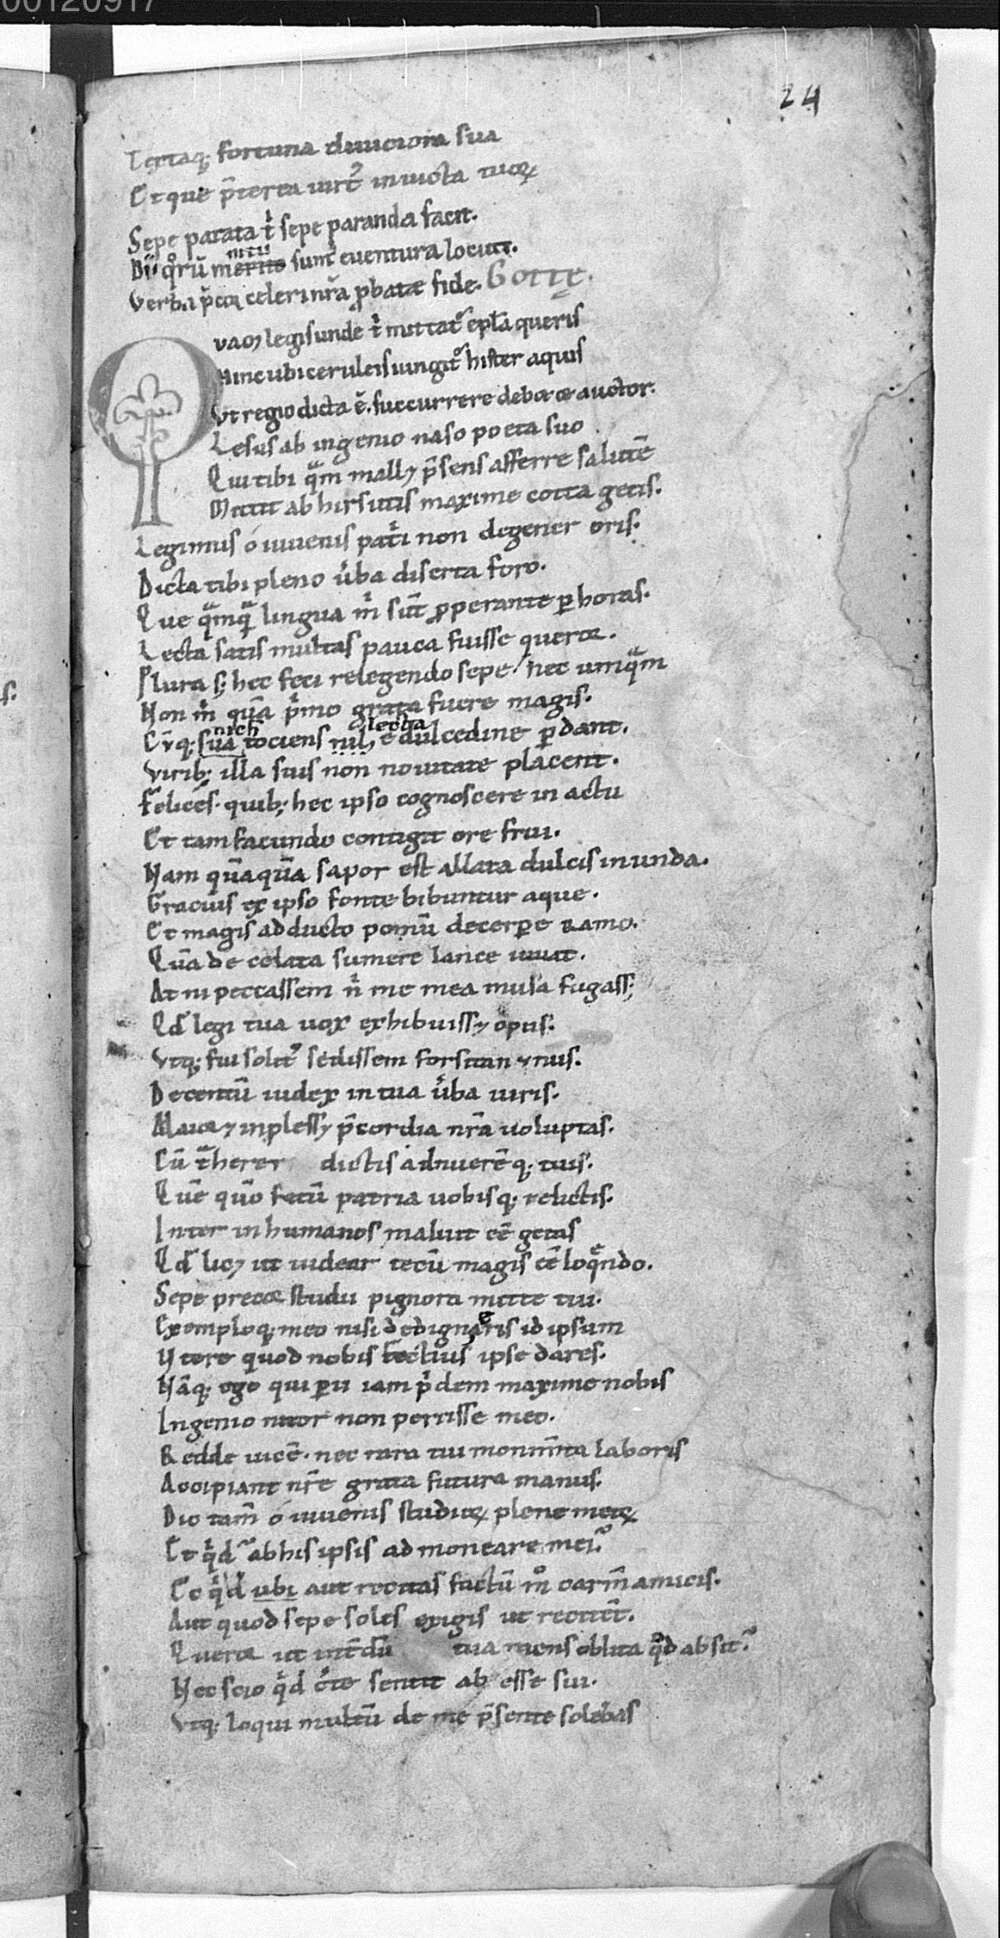 00120917
24
Tectaq; fortuna
Et que p̄terea uirt᷒ inuicta tuoꝝ
Sepe parata t' sepe paranda facit.
Dii q°rū merito nutu sunt euentura locuti.
Verba p̄cor celeri nr̄a ꝓbate fide. Cottę.
Quaꝫ legis unde t' mittat᷒ epl̄a queris
Hinc ubi ceruleis iungit᷒ hister aquis
Vt regio dicta ē. succurrere debet ꞇ auctor.
Lesus ab ingenio naso poeta suo
Qui tibi qᵃm mallꝫ p̄sens afferre salutē
Mittit ab hirsutis maxime cotta getis.
Legimus o iuuenis pat'i non degener oris.
Dicta tibi pleno u'ba diserta foro.
Que qᵃmqᵃ lingua m' sūt ꝓperante ꝑ horas.
Lecta satis multas pauca fuisse queror.
Plura s; hec feci relegendo sepe. nec umqᵃm
Non m' quā p'mo grata fuere magis.
Cūq; sua nich tociens nil lecta e dulcedine ꝑdant.
Virib; illa suis non nouitate placent.
Felices. quib; hec ipso cognoscere in actu
Et tam facundo contigit ore frui.
Nam quāquā sapor est allata dulcis in unda.
Gracius ex ipso fonte bibuntur aque.
Et magis adducto pomū decerꝑe ramo.
Quā de celata sumere lance iuuat.
At ni peccassem n' me mea musa fugass;
Qd̄ legi tua uox exhibuissꝫ opus.
Vtq; fui solit᷒ sedissem forsitan unus.
De centū iudex in tua u'ba uiris.
Maiorꝫ inplessꝫ p̄cordia nr̄a uoluptas.
Cū tᵃherer dictis adnuerēq; tuis.
Quē quō fatū patria uobisq; relictis.
Inter inhumanos maluit eē getas
Qd̄ licꝫ ut uidear tecū magis eē loqᵃndo.
Sepe precor studii pignora mitte tui.
Exemploq; meo nisi dedignaris e id ipsum
Utere quod nobis rectius ipse dares.
Nāq; ego qui perii iam p'dem maxime nobis
Ingenio nitor non perisse meo.
Redde uicē. nec rara tui monim̄ta laboris
Accipiant nr̄e grata futura manus.
Dic tam̄ o iuuenis studioꝝ plene meoꝝ
Et q'd ab his ipsis admoneare mei.
Ec q'd ubi aut recitas factū m° carm̄ amicis.
Aut quod sepe soles exigis ut recitēt.
Queror ut int̄dū tua mens oblita q'd absit.
Nec scio q'd c'te sentit abesse sui.
Vtq; loqui multū de me p̄sente solebas